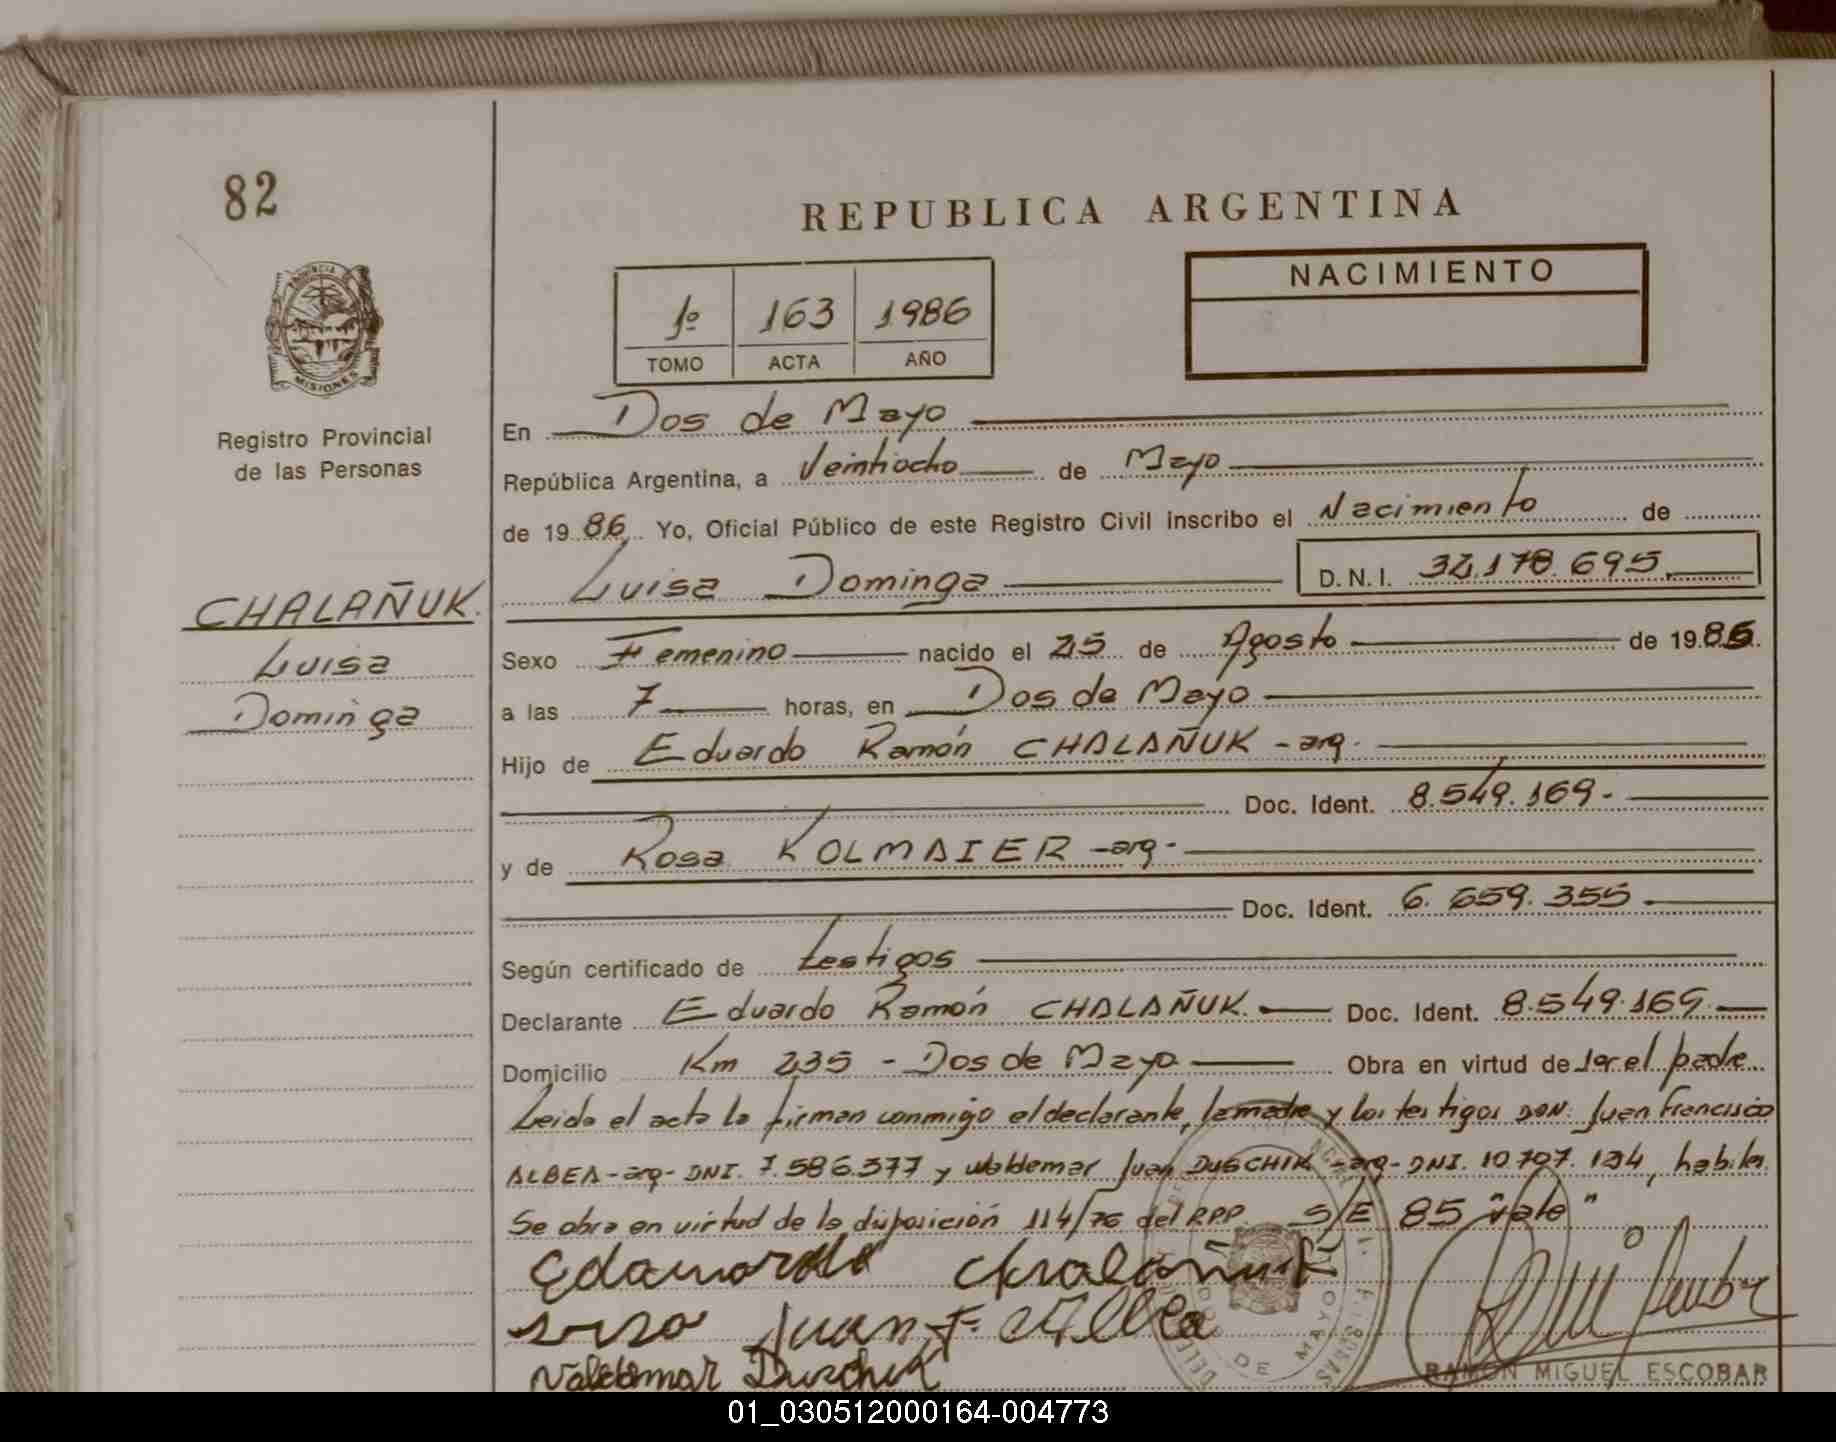 82
REPUBLICA ARGENTINA
NACIMIENTO
1º 163 1986
TOMO ACTA AÑO
PROVINCIA DE
MISIONES
Registro Provincial
de las Personas
CHALAÑUK.
Luisa
Dominga
En Dos de Mayo
República Argentina, a Veintiocho de Mayo
de 1986 Yo, Oficial Público de este Registro Civil inscribo el Nacimiento de
Luisa Dominga D.N.I. 695
Sexo Femenino nacido el 25 de Agosto de 1985.
a las 7 horas, en Dos de Mayo
Hijo de Eduardo Ramón CHALAÑUK - arg.
Doc. Ident. 8.549.169.-
y de Rosa KOLMAIER -arg-
Doc. Ident. 6.659.355
Según certificado de testigos
Declarante Eduardo Ramón CHALAÑUK. Doc. Ident. 8.549.169.
Domicilio Km 235 - Dos de Mayo Obra en virtud de ser el padre
Leida el acta la firman conmigo el declarante, la madre y los testigos DON: Juan Francisco
ALBEA -arg- DNI. 7.586.377 y Waldemar Juan DUSCHIK -arg- DNI. 10.707.134, habiles
Se obra en virtud de la disposición 114/76 del RPP S/E 85 "vale"
Chalañuk
Juan F. Albea
Valdemar Duschik
DOS DE MAYO
RAMON MIGUEL ESCOBAR
01_030512000164-004773